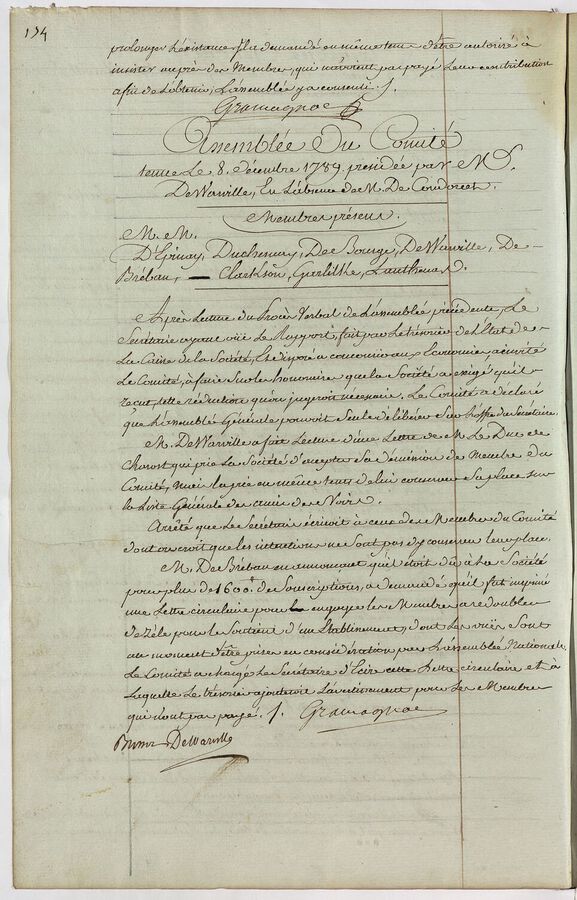 134
prolonger l'existence, Il a demandé en même tems d'être autorisé à
insister auprès des Membres, qui n'avoient pas payé leur contribution
afin de l'obtenir, l'assemblée y a consenti ./.
Gramagnac
Assemblée Du Comité
tenue Le 8. décembre 1789. présidée par M.
DeWarville, En L'absence de M. De Condorcet.
Membres présens.
M. M.
D'Epinay, Duchesnay, De Bourge, DeWarville, De
Bréban, — Clarkson, Lanthenas.
Après Lecture du Procès Verbal de L'assemblée précédente, Le
Secrétaire ayant ouï Le Rapport, fait par Le trésorier de L'Etat de
La Caisse de la Société, s'est disposé à concourir aux Economies, a invité
Le Comité, à faire sur les honoraires que la Société a exigé qu'il
reçut, telle réduction qu'on jugeroit nécessaire. Le Comité a déclaré
que L'assemblée Générale pouvoit seule délibérer sur l'offre du Secrétaire.
M. DeWarville a fait Lecture d'une Lettre de M. Le Duc de
Charost qui prie La Société d'accepter sa démission de Membre du
Comité, mais la prie en même tems de lui conserver sa place sur
la Liste Générale des amis des Noirs.
Arrêté que Le Secrétaire écriroit à ceux des Membres du Comité
dont on croit que les intentions ne sont pas d'y conserver leur place.
M. De Bréban en annonçant qu'il étoit dû à La Société
pour plus de 1600.# de Souscriptions, a demandé qu'il fut imprimé
une Lettre circulaire pour engager les Membres a redoubler
de zèle pour le soutient d'un Etablissement, dont les vues sont
au moment d'être prises en considération par L'assemblée Nationale.
Le Comité a chargé Le Secrétaire d'Ecrire cette Lettre circulaire et à
laquelle Le trésorier ajouteroit L'avertissement pour Les Membres
qui n'ont pas payé. ./. Gramagnac
Brissot DeWarville